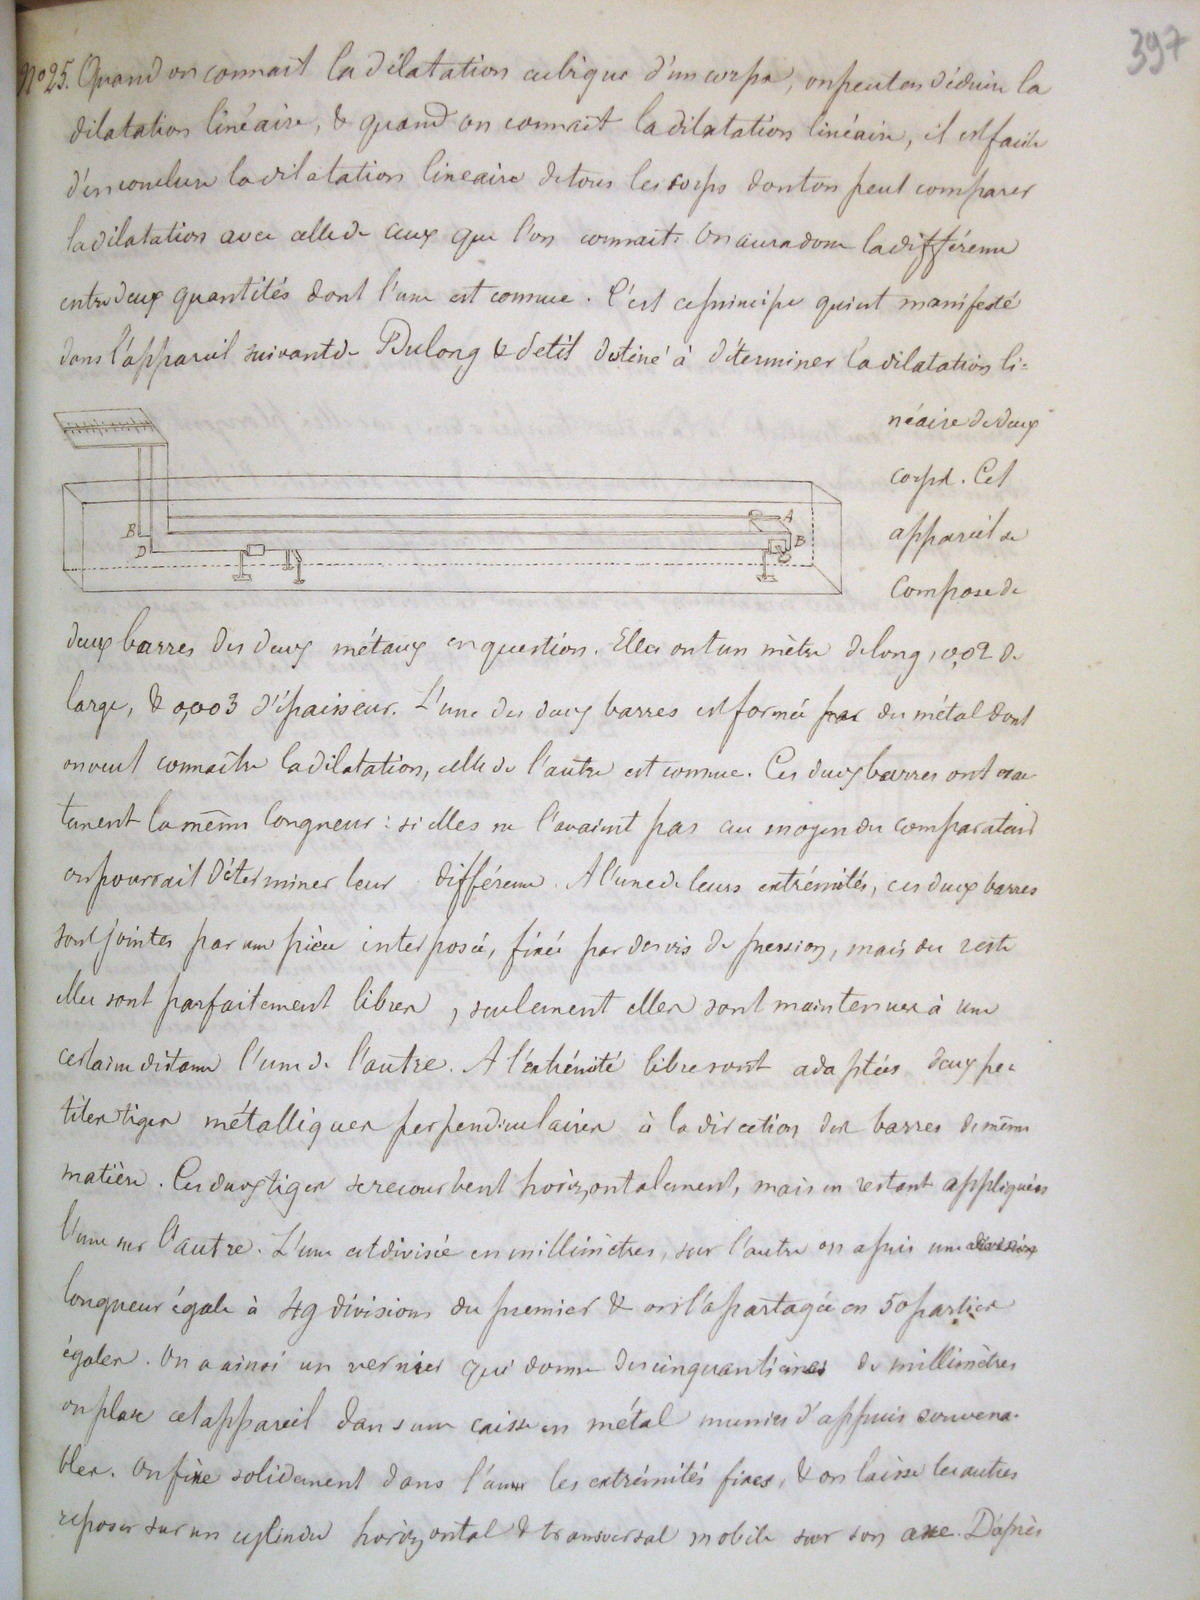 397
N° 25. Quand on connait la dilatation cubique d'un corps, on peut en déduire la
dilatation linéaire, & quand on connait la dilatation linéaire, il est facile
d'en conclure la dilatation lineaire de tous les corps dont on peut comparer
la dilatation avec celle de ceux que l'on connait. On aura donc la différence
entre deux quantités dont l'une est connue. C'est ce principe qui est manifesté
dans l'appareil suivant de Dulong & Petit destiné à déterminer la dilatation li-
néaire de deux
corps. Cet
appareil se
compose de
A
B
B
D
deux barres des deux métaux en question. Elles ont un mètre de long, 0,02 de
large, & 0,003 d'épaisseur. L'une des deux barres est formée par du métal dont
on veut connaître la dilatation, celle de l'autre est connue. Ces deux barres ont exac
tement la même longueur : si elles ne l'avaient pas au moyen du comparateur
on pourrait déterminer leur différence. A l'une de leurs extrémités, ces deux barres
sont jointes par une pièce interposée, fixée par des vis de pression, mais du reste
elles sont parfaitement libres, seulement elles sont maintenues à une
certaine distance l'une de l'autre. A l'extrémité libre sont adaptées deux pe-
tites tiges métalliques perpendiculaires à la direction des barres de même
matière. Ces deux tiges se recourbent horizontalement, mais en restant appliquées
l'une sur l'autre. L'une est divisée en millimètres, sur l'autre on a pris une division
longueur égale à 49 divisions du premier & on l'a partagée en 50 parties
égales. On a ainsi un vernier qui donne des cinquantièmes de millimètres
on place cet appareil dans une caisse en métal munies d'appuis convena-
bles. On fixe solidement dans l'une les extrémités fixes, & on laisse les autres
reposer sur un cylindre horizontal & transversal mobile sur son axe. D'après